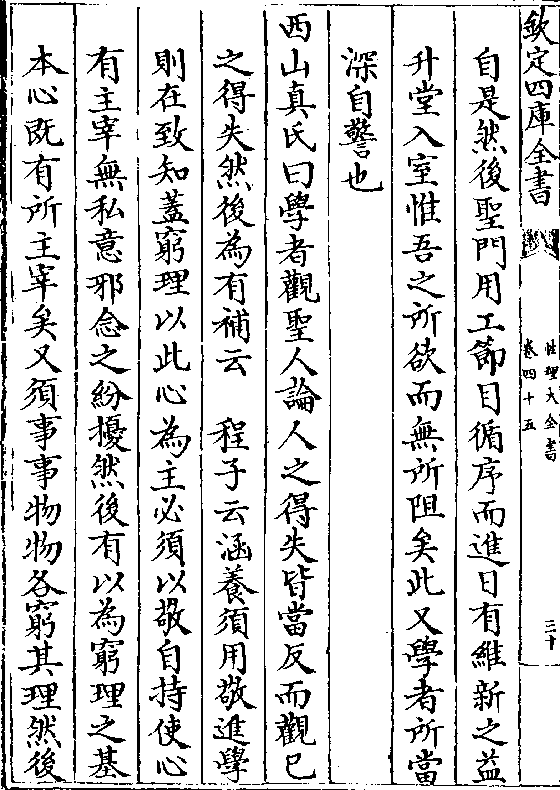 欽定四庫全書
性理大全書
卷四十五
三十
自是然後聖門用工節目循序而進日有維新之益
升堂入室惟吾之所欲而無所阻矣此又學者所當
深自警也
西山真氏曰學者觀聖人論人之得失皆當反而觀己
之得失然後為有補云　程子云涵養須用敬進學
則在致知蓋窮理以此心為主必須以敬自持使心
有主宰無私意邪念之紛擾然後有以為窮理之基
本心既有所主宰矣又須事事物物各窮其理然後